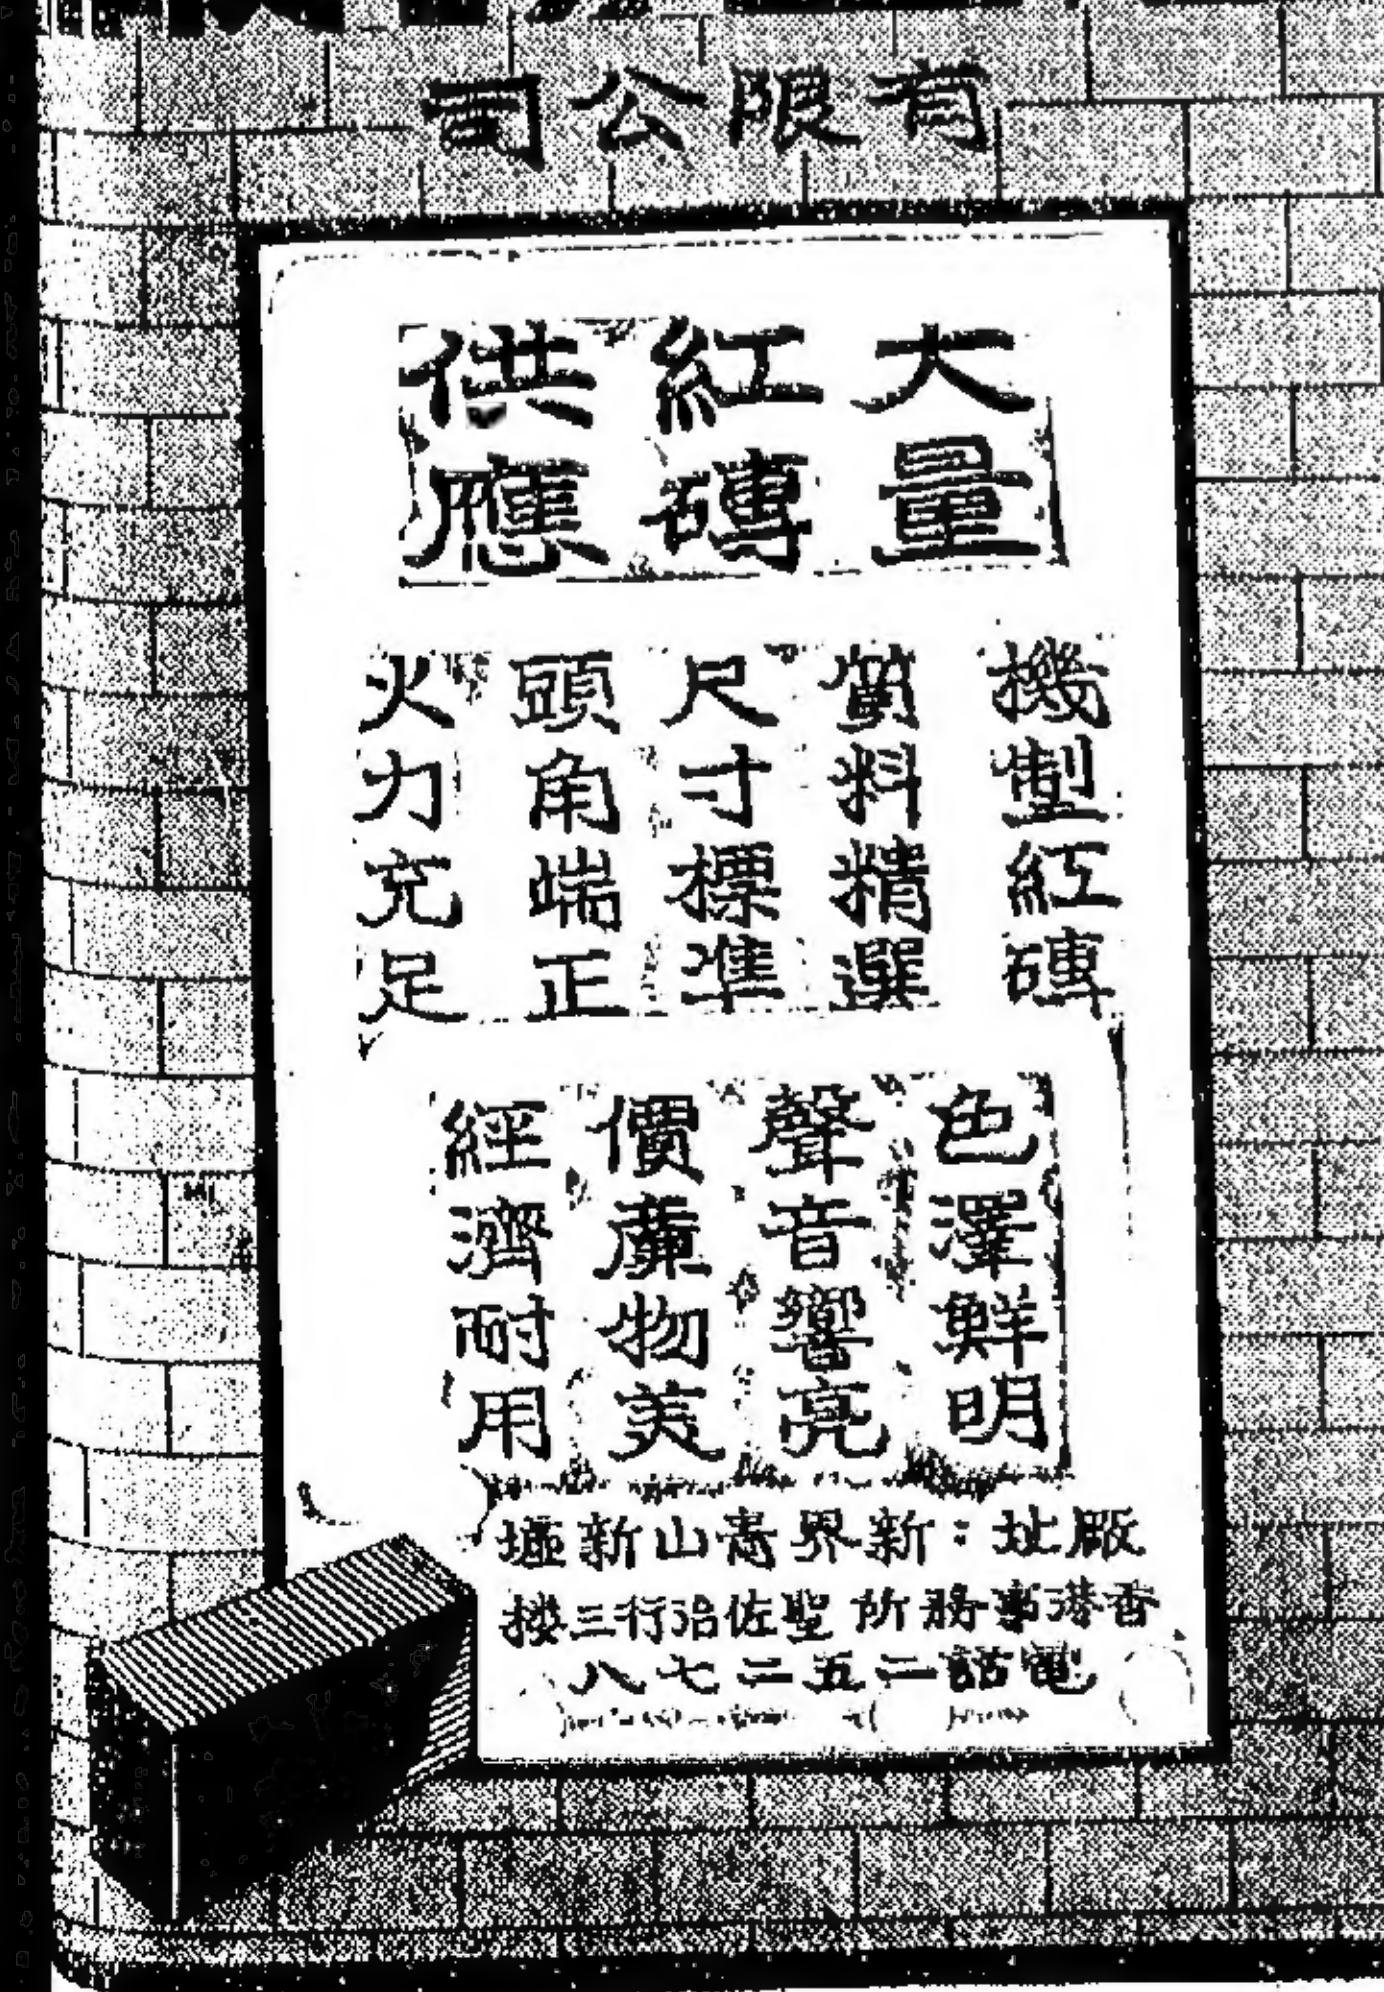 有限公司
大量
紅磚
供應
機製紅磚
質料精選
尺寸標準
頭角端正
火力充足
色澤鮮明
聲音響亮
價廉物美
經濟耐用
廠址：新界青山新墟
香港事務所聖佐治行三樓
電話二五二七八